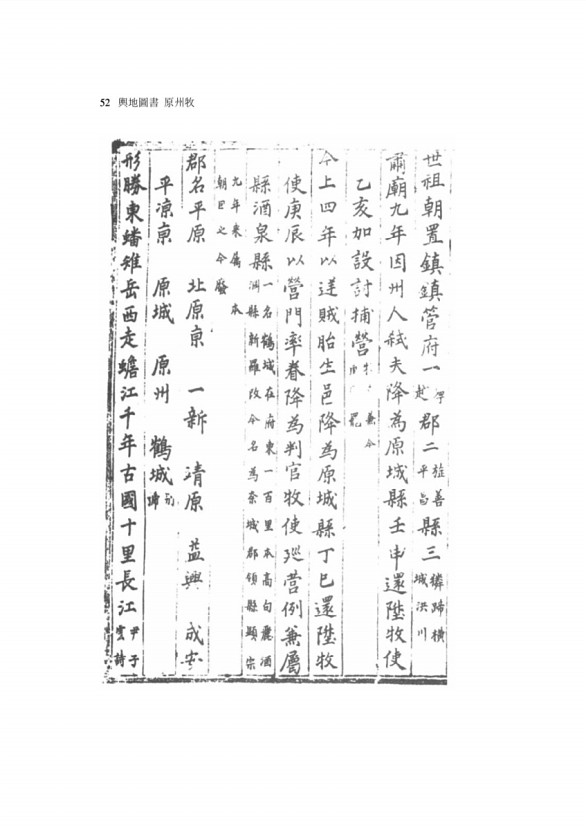 52 輿地圖書 原州牧
世祖朝置鎮鎮管府一越郡二旌善平昌縣三麟蹄橫城洪川
肅廟九年因州人弑夫降為原城縣壬申還陞牧使
乙亥加設討捕營兼今罷
今上四年以逆賊胎生邑降為原城縣丁巳還陞牧
使庚辰以營門率眷降為判官牧使廵營例兼屬
縣酒泉縣一名鶴城在府東一百里本高句麗酒淵縣新羅改今名為奈城郡領縣顯宗
九年來属本朝因之今廢
郡名平原 北原京 一新 靖原 益興 成安
平凉京 原城 原州 鶴城別號
形勝東蟠雉岳西走蟾江千年古國十里長江尹子雲詩